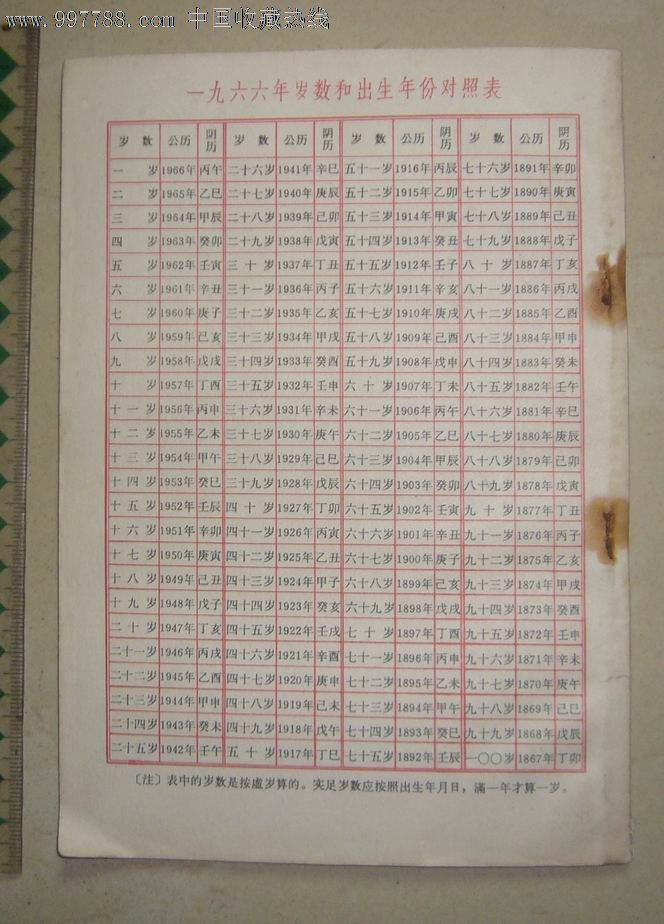 www.997788.com 中国收藏热线
一九六六年岁数和出生年份对照表
岁数 公历 阴历 岁数 公历 阴历 岁数 公历 阴历 岁数 公历 阴历
一岁 1966年 丙午 二十六岁 1941年 辛巳 五十一岁 1916年 丙辰 七十六岁 1891年 辛卯
二岁 1965年 乙巳 二十七岁 1940年 庚辰 五十二岁 1915年 乙卯 七十七岁 1890年 庚寅
三岁 1964年 甲辰 二十八岁 1939年 己卯 五十三岁 1914年 甲寅 七十八岁 1889年 己丑
四岁 1963年 癸卯 二十九岁 1938年 戊寅 五十四岁 1913年 癸丑 七十九岁 1888年 戊子
五岁 1962年 壬寅 三十岁 1937年 丁丑 五十五岁 1912年 壬子 八十岁 1887年 丁亥
六岁 1961年 辛丑 三十一岁 1936年 丙子 五十六岁 1911年 辛亥 八十一岁 1886年 丙戌
七岁 1960年 庚子 三十二岁 1935年 乙亥 五十七岁 1910年 庚戌 八十二岁 1885年 乙酉
八岁 1959年 己亥 三十三岁 1934年 甲戌 五十八岁 1909年 己酉 八十三岁 1884年 甲申
九岁 1958年 戊戌 三十四岁 1933年 癸酉 五十九岁 1908年 戊申 八十四岁 1883年 癸未
十岁 1957年 丁酉 三十五岁 1932年 壬申 六十岁 1907年 丁未 八十五岁 1882年 壬午
十一岁 1956年 丙申 三十六岁 1931年 辛未 六十一岁 1906年 丙午 八十六岁 1881年 辛巳
十二岁 1955年 乙未 三十七岁 1930年 庚午 六十二岁 1905年 乙巳 八十七岁 1880年 庚辰
十三岁 1954年 甲午 三十八岁 1929年 己巳 六十三岁 1904年 甲辰 八十八岁 1879年 己卯
十四岁 1953年 癸巳 三十九岁 1928年 戊辰 六十四岁 1903年 癸卯 八十九岁 1878年 戊寅
十五岁 1952年 壬辰 四十岁 1927年 丁卯 六十五岁 1902年 壬寅 九十岁 1877年 丁丑
十六岁 1951年 辛卯 四十一岁 1926年 丙寅 六十六岁 1901年 辛丑 九十一岁 1876年 丙子
十七岁 1950年 庚寅 四十二岁 1925年 乙丑 六十七岁 1900年 庚子 九十二岁 1875年 乙亥
十八岁 1949年 己丑 四十三岁 1924年 甲子 六十八岁 1899年 己亥 九十三岁 1874年 甲戌
十九岁 1948年 戊子 四十四岁 1923年 癸亥 六十九岁 1898年 戊戌 九十四岁 1873年 癸酉
二十岁 1947年 丁亥 四十五岁 1922年 壬戌 七十岁 1897年 丁酉 九十五岁 1872年 壬申
二十一岁 1946年 丙戌 四十六岁 1921年 辛酉 七十一岁 1896年 丙申 九十六岁 1871年 辛未
二十二岁 1945年 乙酉 四十七岁 1920年 庚申 七十二岁 1895年 乙未 九十七岁 1870年 庚午
二十三岁 1944年 甲申 四十八岁 1919年 己未 七十三岁 1894年 甲午 九十八岁 1869年 己巳
二十四岁 1943年 癸未 四十九岁 1918年 戊午 七十四岁 1893年 癸巳 九十九岁 1868年 戊辰
二十五岁 1942年 壬午 五十岁 1917年 丁巳 七十五岁 1892年 壬辰 一〇〇岁 1867年 丁卯
〔注〕表中的岁数是按虚岁算的。实足岁数应按照出生年月日，满一年才算一岁。